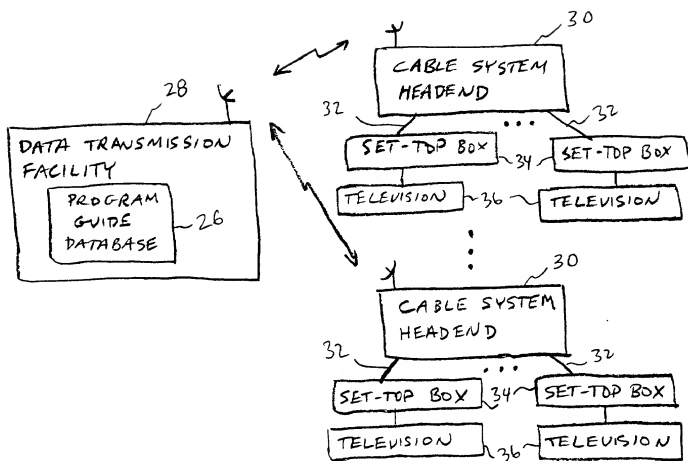 28
DATA TRANSMISSION
FACILITY
PROGRAM
GUIDE
DATABASE
26
30
CABLE SYSTEM
HEADEND
32
32
SET-TOP BOX
34
SET-TOP BOX
TELEVISION
36
TELEVISION
30
CABLE SYSTEM
HEADEND
32
32
SET-TOP BOX
34
SET-TOP BOX
TELEVISION
36
TELEVISION